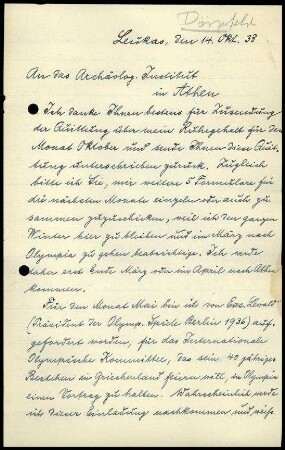 Dörpfeld
Leukas, den 14. Okt. 33
An das Archäolog. Institut
in Athen
Ich danke Ihnen bestens für Zusendung
der Quittung über mein Ruhegehalt für den
Monat Oktober und sende Ihnen diese Quit-
tung unterschrieben zurück. Zugleich
bitte ich Sie, mir weitere 5 Formulare für
die nächsten Monate einzeln oder auch zu
sammen zuzuschicken, weil ich den ganzen
Winter hier zu bleiben und im März nach
Olympia zu gehen beabsichtige. Ich werde
daher erst Ende März oder im April nach Athen
kommen.
Für den Monat Mai bin ich von Exz. Lewald
(Präsident der Olymp. Spiele Berlin 1936) auf-
gefordert worden, für das Internationale
Olympische Kommittee, das sein 40 jähriges
Bestehen in Griechenland feiern will, in Olympia
einen Vortrag zu halten. Wahrscheinlich werde
ich dieser Einladung nachkommen und